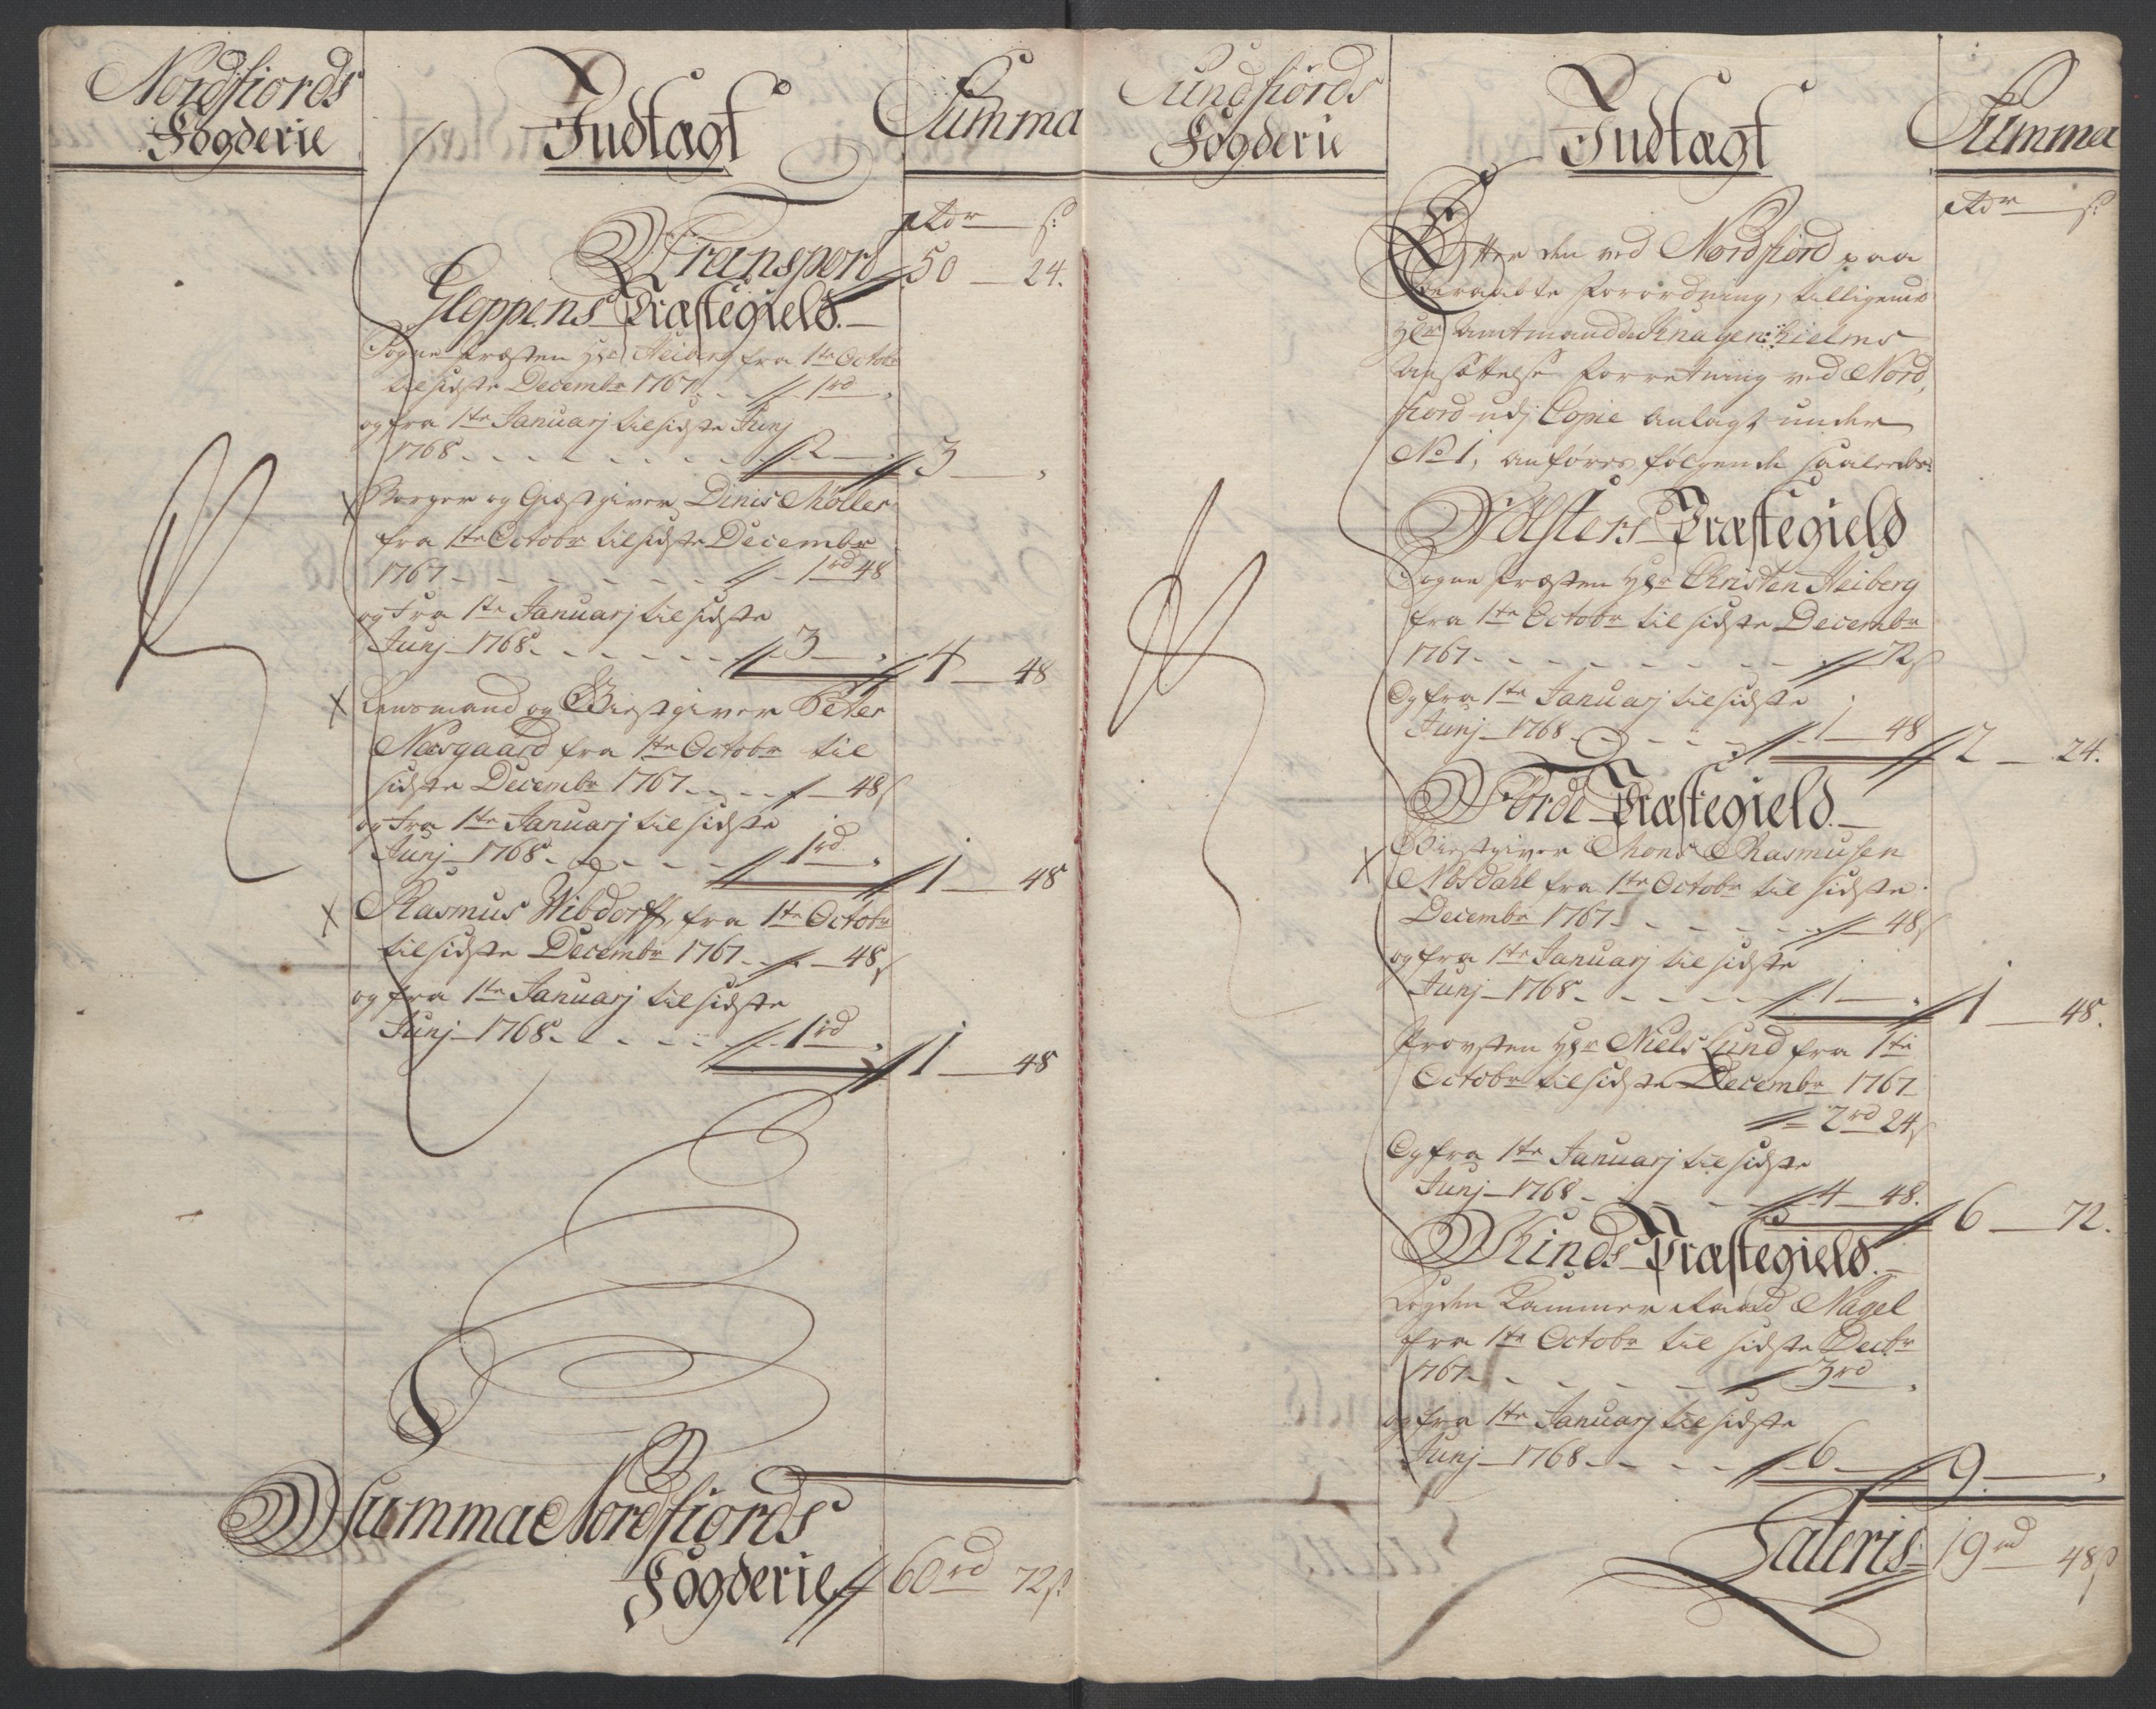 Nordfiords
Fogderie
Indtægt
Summa
Rdr — s:
Transport 50 — 24.
Gloppens Præstegield.
Sogne Præsten Hr Heiberg fra 1te Octobr
til sidste Decembr 1767 - - 1rd — „
og fra 1te Januarj til sidste Junj
1768 - - - - - 2 — „ 3 — „
x Borger og Giæstgiver Dinis Møller
fra 1te Octobr til sidste Decembr
1767 - - - - - 1rd 48
og fra 1te Januarj til sidste
Junj 1768 - - - - - 3 — „ 4 — 48
x Lensmand og Giestgiver Peter
Næsgaard fra 1te Octobr til
sidste Decembr 1767 - - - - 48s
og fra 1te Januarj til sidste
Junj 1768 - - - - 1rd — „ 1 — 48
x Rasmus Wibdorff, fra 1te Octobr
til sidste Decembr 1767 - - - 48s
og fra 1te Januarj til sidste
Junj 1768 - - - - - 1rd — „ 1 — 48
Summa Nordfiords
Fogderie 60rd 72s
Sundfiords
Fogderie
Indtægt
Summa
Rdr — s:
Efter den ved Nordfiord paa
beraabte Forordning, tilligemed
Hr Amtmand de Knagenhielms
Ansættelse Forretning ved Nord,
fiord udj Copie anlagt under
No 1, anføres følgende saaledes:
Jølsters Præstegield
Sogne Præsten Hr Christen Heiberg
fra 1te Octobr til sidste Decembr
1767 - - - - - - 72s
Og fra 1te Januarj til sidste
Junj 1768 - - - - - 1 — 48 2 — 24.
Førde Præstegield.
x Giestgiver Mons Rasmusen
Nøsdahl fra 1te Octobr til sidste
Decembr 1767 - - - - - 48s
og fra 1te Januarj til sidste
Junj 1768 - - - - - 1 — „ 1 — 48.
Provsten Hr Niels Lund fra 1te
Octobr til sidste Decembr 1767
2rd 24s
Og fra 1te Januarj til sidste
Junj 1768 - - - - 4 — 48. 6 — 72.
Kinds Præstegield.
Fogden Kammer Raad Nagel
fra 1te Octobr til sidste Decbr
1767 - - - - - 3rd — „
og fra 1te Januarj til sidste
Junj 1768 - - - - 6 — „ 9 — „
Lateris 19rd 48s